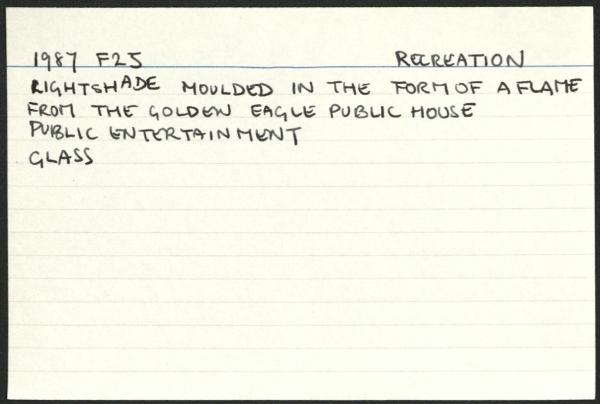 1987 F25 RECREATION
RIGHTSHADE MOULDED IN THE FORM OF A FLAME
FROM THE GOLDEN EAGLE PUBLIC HOUSE
PUBLIC ENTERTAINMENT
GLASS